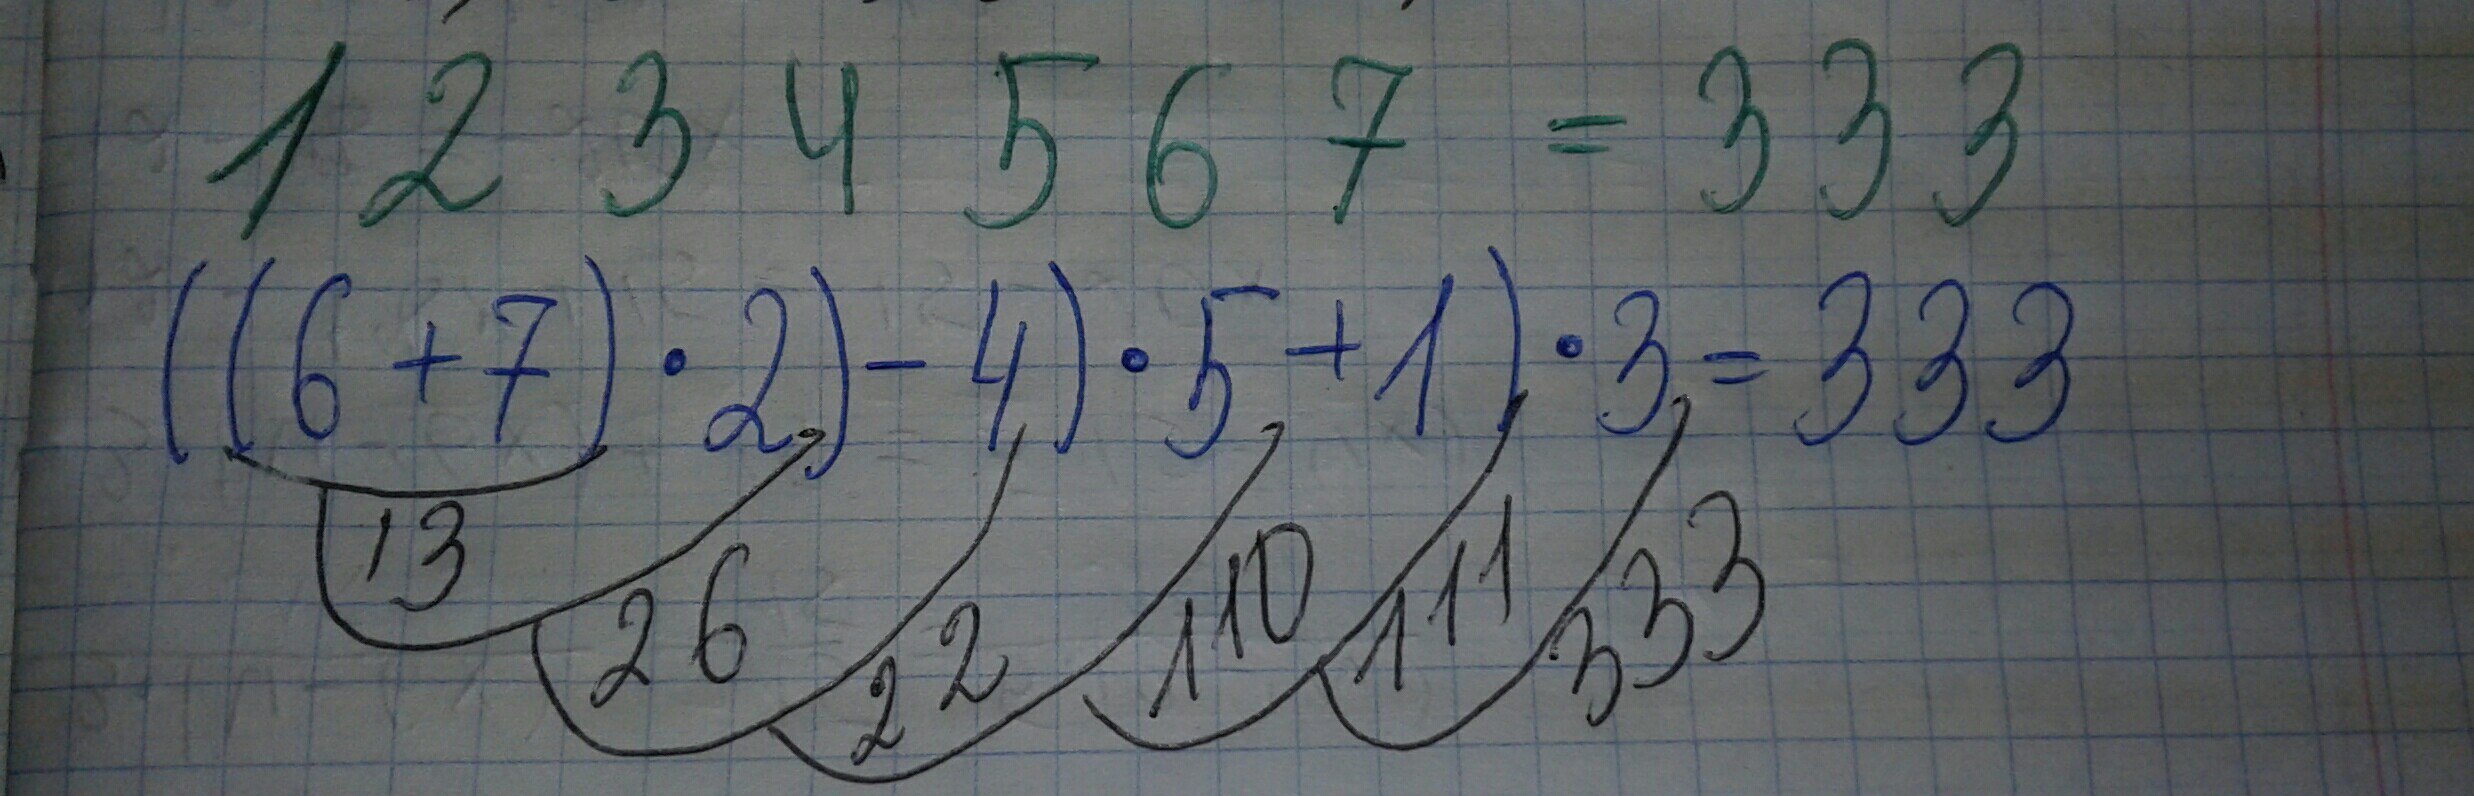 1 2 3 4 5 6 7 = 333
((6+7)·2)-4)·5+1)·3=333
13 26 22 110 111 333